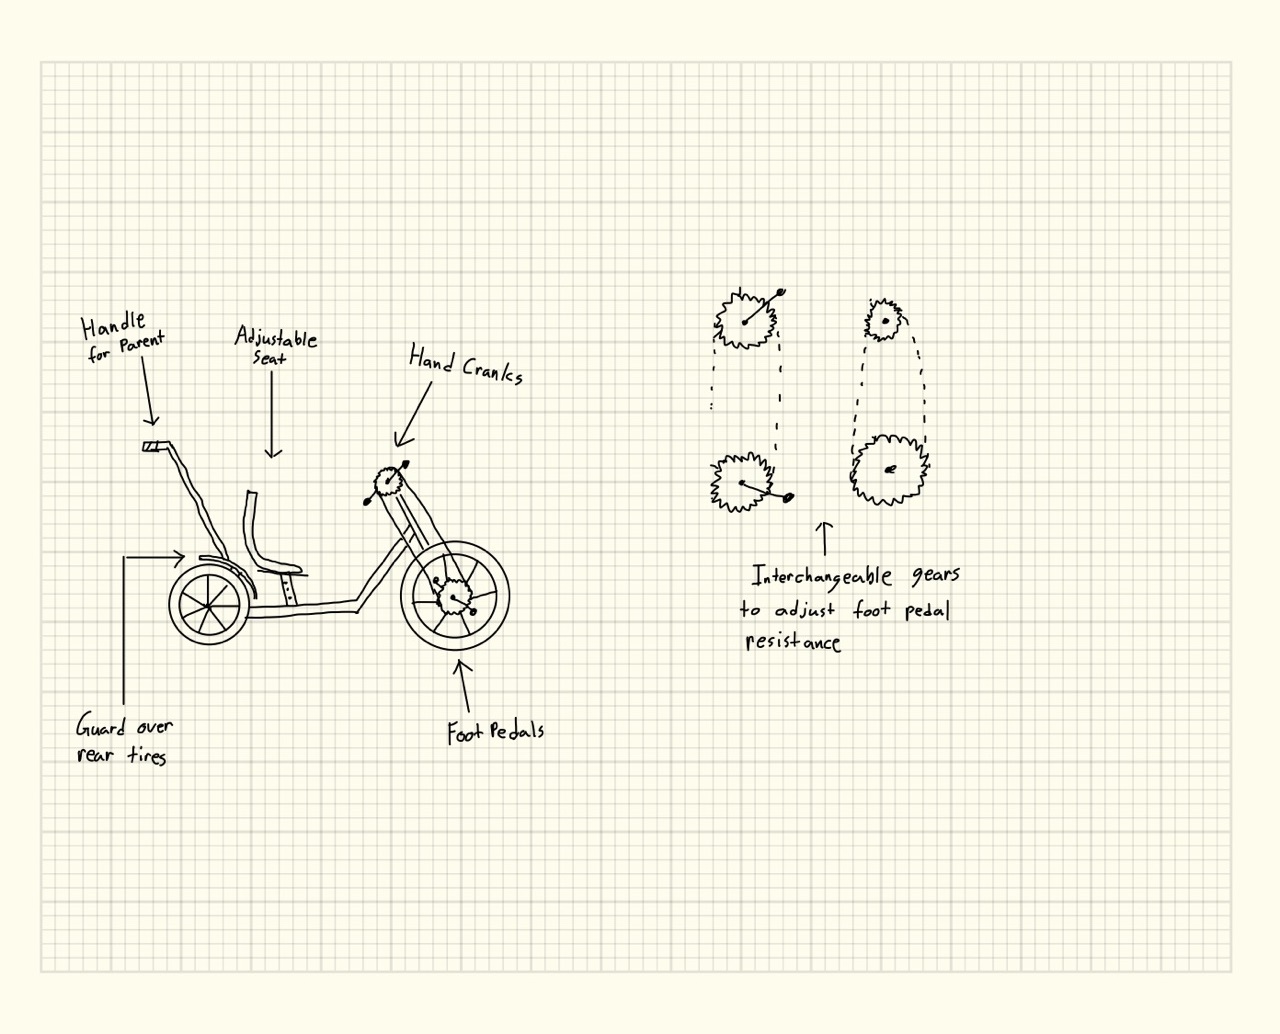 Handle
for Parent
Adjustable
Seat
Hand Cranks
Guard over
rear tires
Foot Pedals
Interchangeable gears
to adjust foot pedal
resistance